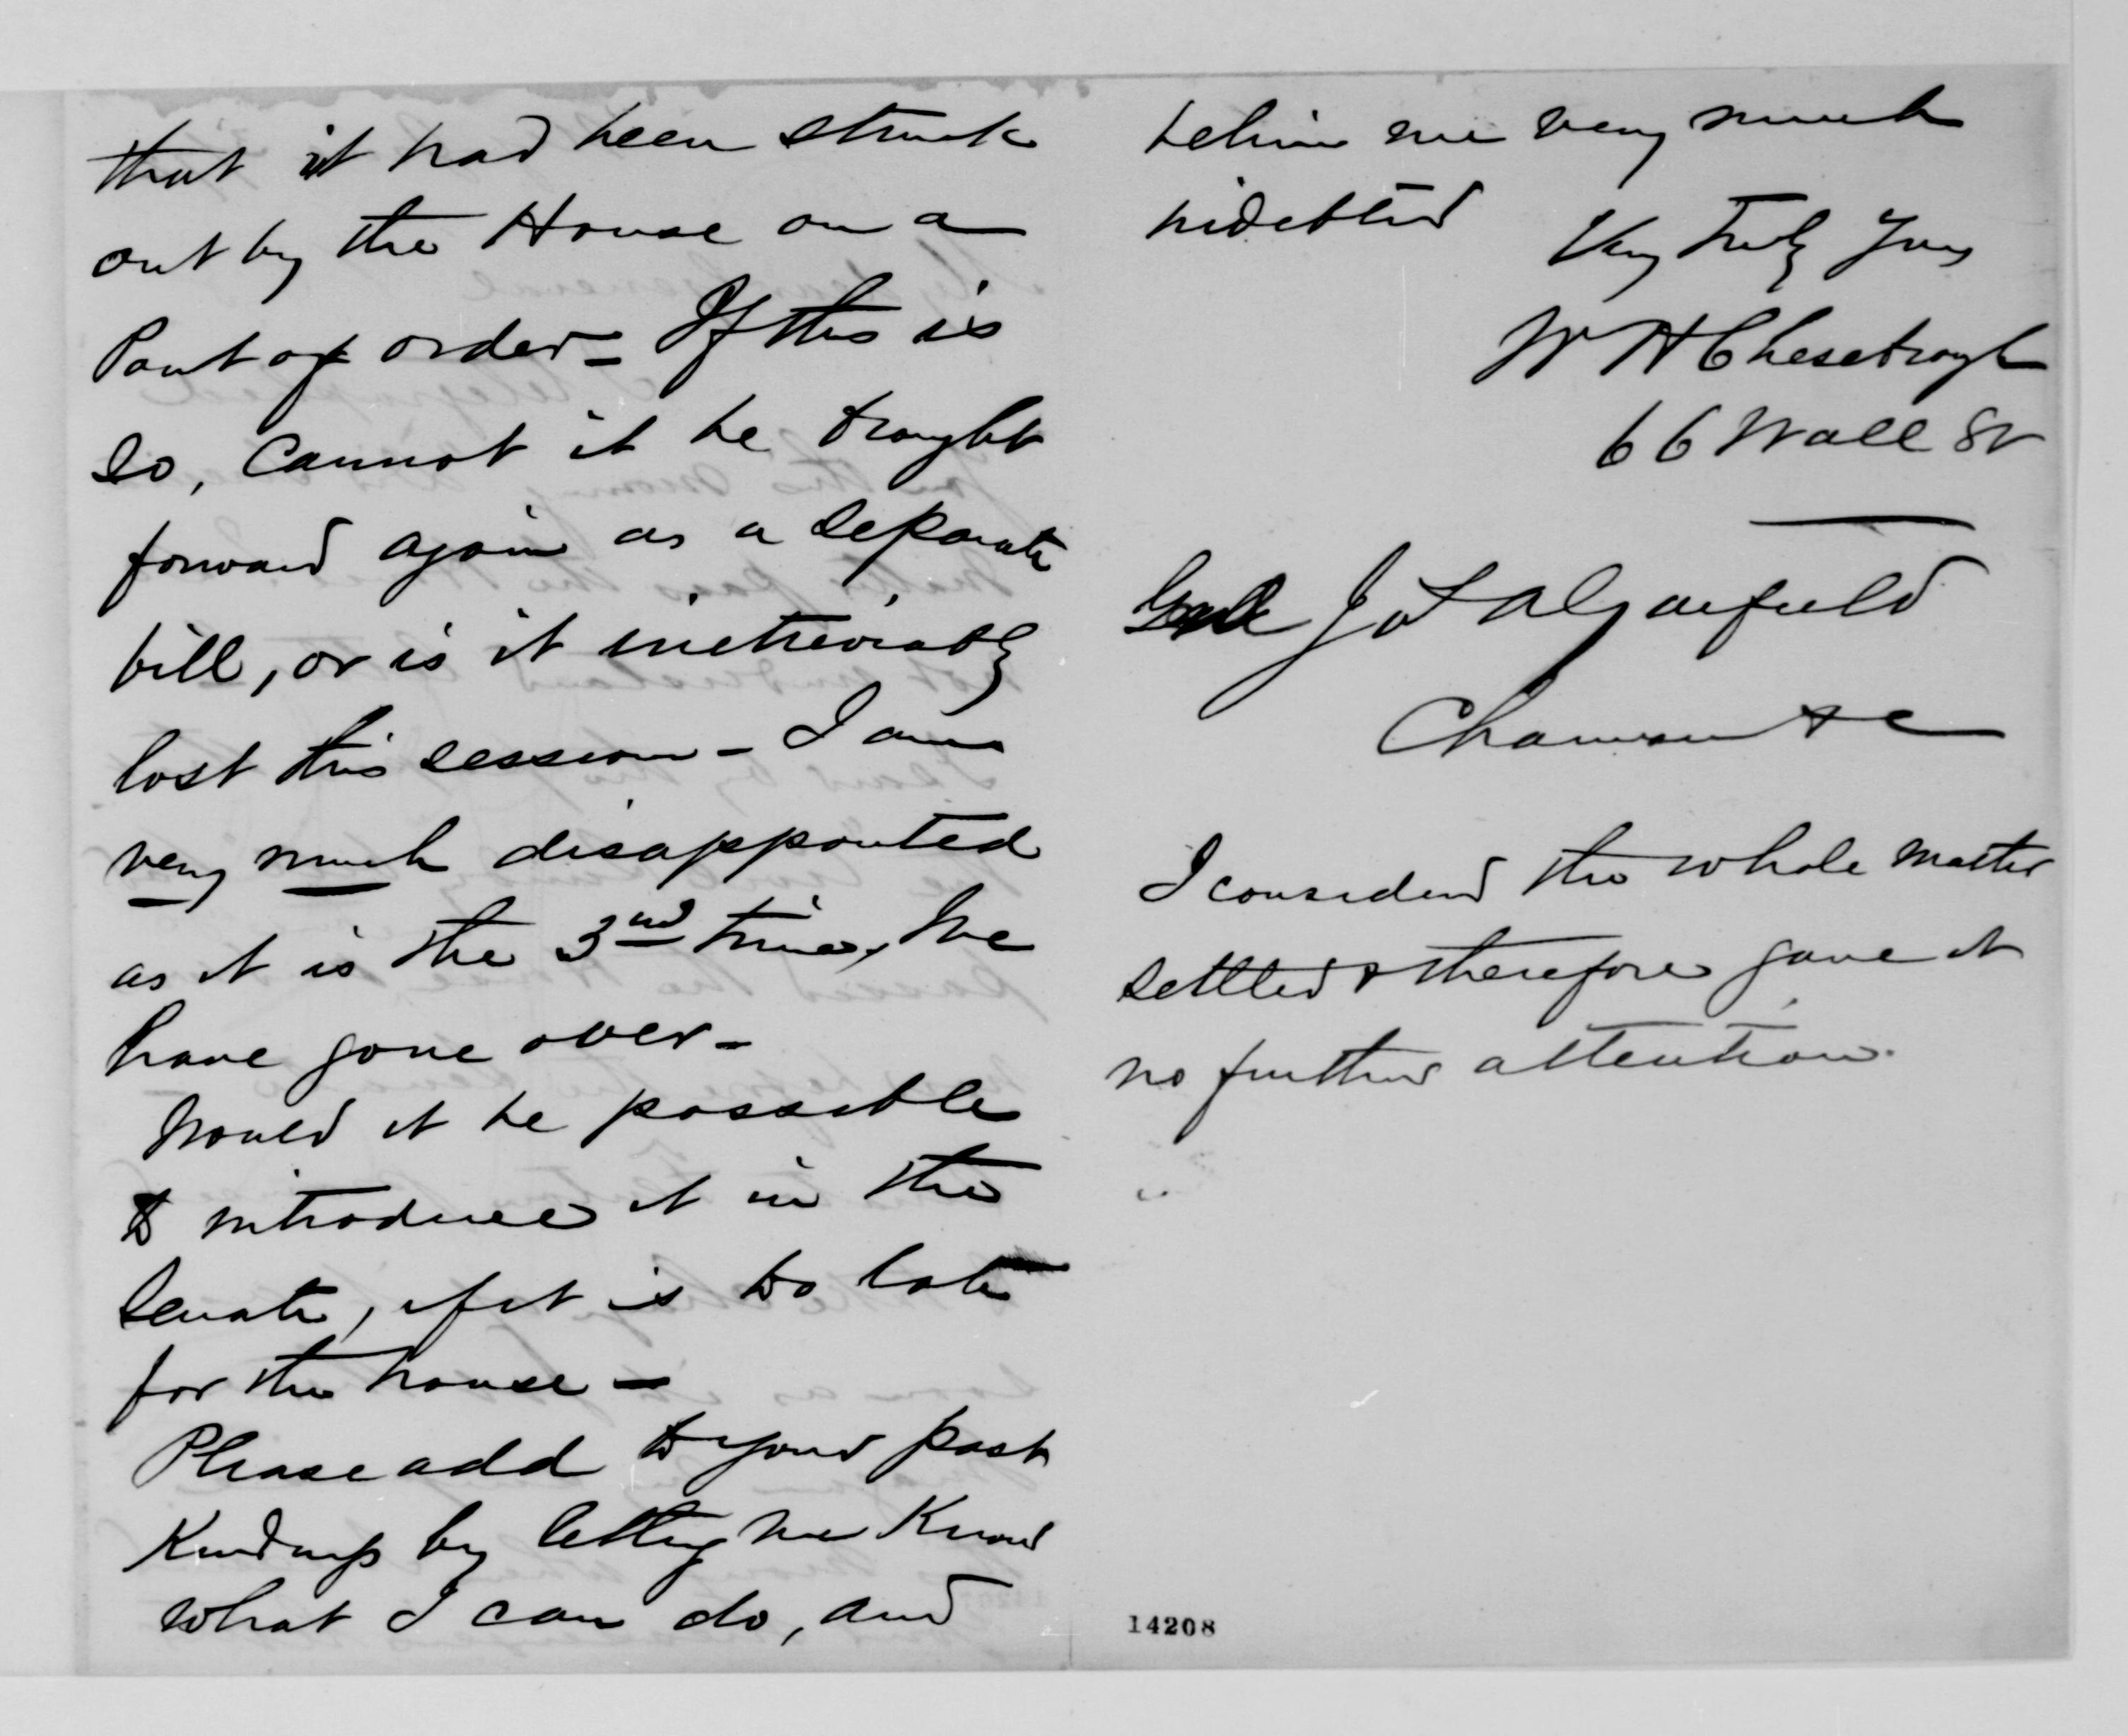 that it had been struck
out by the House on a
Point of order = If this is
so, cannot it be brought
forward again as a separate
bill, or is it irretrievably
lost this session - I am
very much disappointed
as it is the 3rd time, we
have gone over -
Would it be possible
to introduce it in the
Senate, if it is too late
for the house -
Please add to your past
Kindness by letting me Know
what I can do, and
believe me very much
indebted
Very Truly Yours
W H Chesebrough
66 Wall St
Genl Jas A Garfield
Chairman &c
I considered the whole matter
settled & therefore gave it
no further attention.
14208